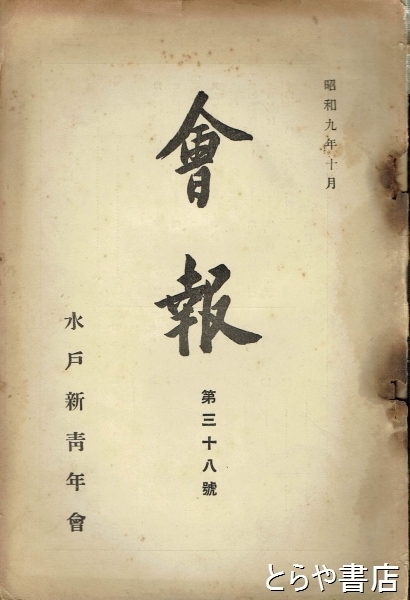 昭和九年十月
會報
第三十八號
水戸新靑年會
とらや書店